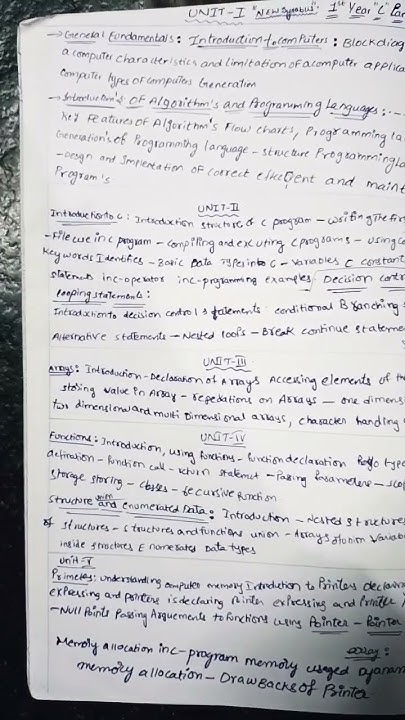 UNIT-I "New Syllabus" : 1st Year "C" Par
→ General Fundamentals : Introduction to computers : Block diag
a computer characteristics and limitation of a computer applica
computer types of computers Generation
→ Introduction's OF Algorithm's and Programming Languages :-
Key Features of Algorithm's Flow charts, Programming la
Generations of Programming language - structure Programming La
- Design and Implentation of correct effecient and maint
Program's.
UNIT-II
Introduction to C : Introduction structure of C program - writing The first
- File use in C program - compiling and executing C programs - using co
Keywords Identifies - Basic Data Types into C - Variables C constant
statements inc-operator inc-programming examples. Decision contr
looping statements :
Introduction to decision control statements conditional Branching
Alternative statements - Nested loops - Break continue stateme
UNIT-III
Arrays : Introduction - Declaration of Arrays Accessing elements of th
storing value in Array - on Arrays - one dimens
two dimensional and multi Dimensional arrays, character handling
UNIT-IV
Functions : Introduction, using functions - function declaration type
- function call - return statement - Passing - scop
storage storing - classes - recursive function
structure with and enumerated Data : Introduction - Nested structures
of structures - structures and functions union - Arrays of union Variab
inside structures Enamerates Data types
Unit-V
understanding computer memory Introduction to Printers declarin
expressing and pointers is declaring Pointer expressing and
- Null Points Passing Arguements to functions using Pointer - Pointer
array :
Memory allocation inc-program memory useged
memory allocation - Draw Backs of Pointer